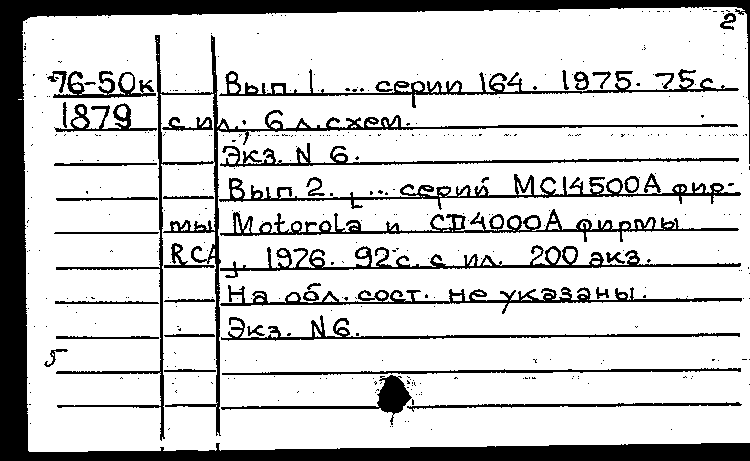 2
76-50к Вып. 1. ... серии 164. 1975. 75с.
1879 с ил.; 6 л.схем.
Экз. N 6.
Вып. 2. [... серий МС14500А фир-
мы Motorola и СД4000А фирмы
RCA]. 1976. 92с. с ил. 200 экз.
На обл. сост. не указаны.
Экз. N6.
5